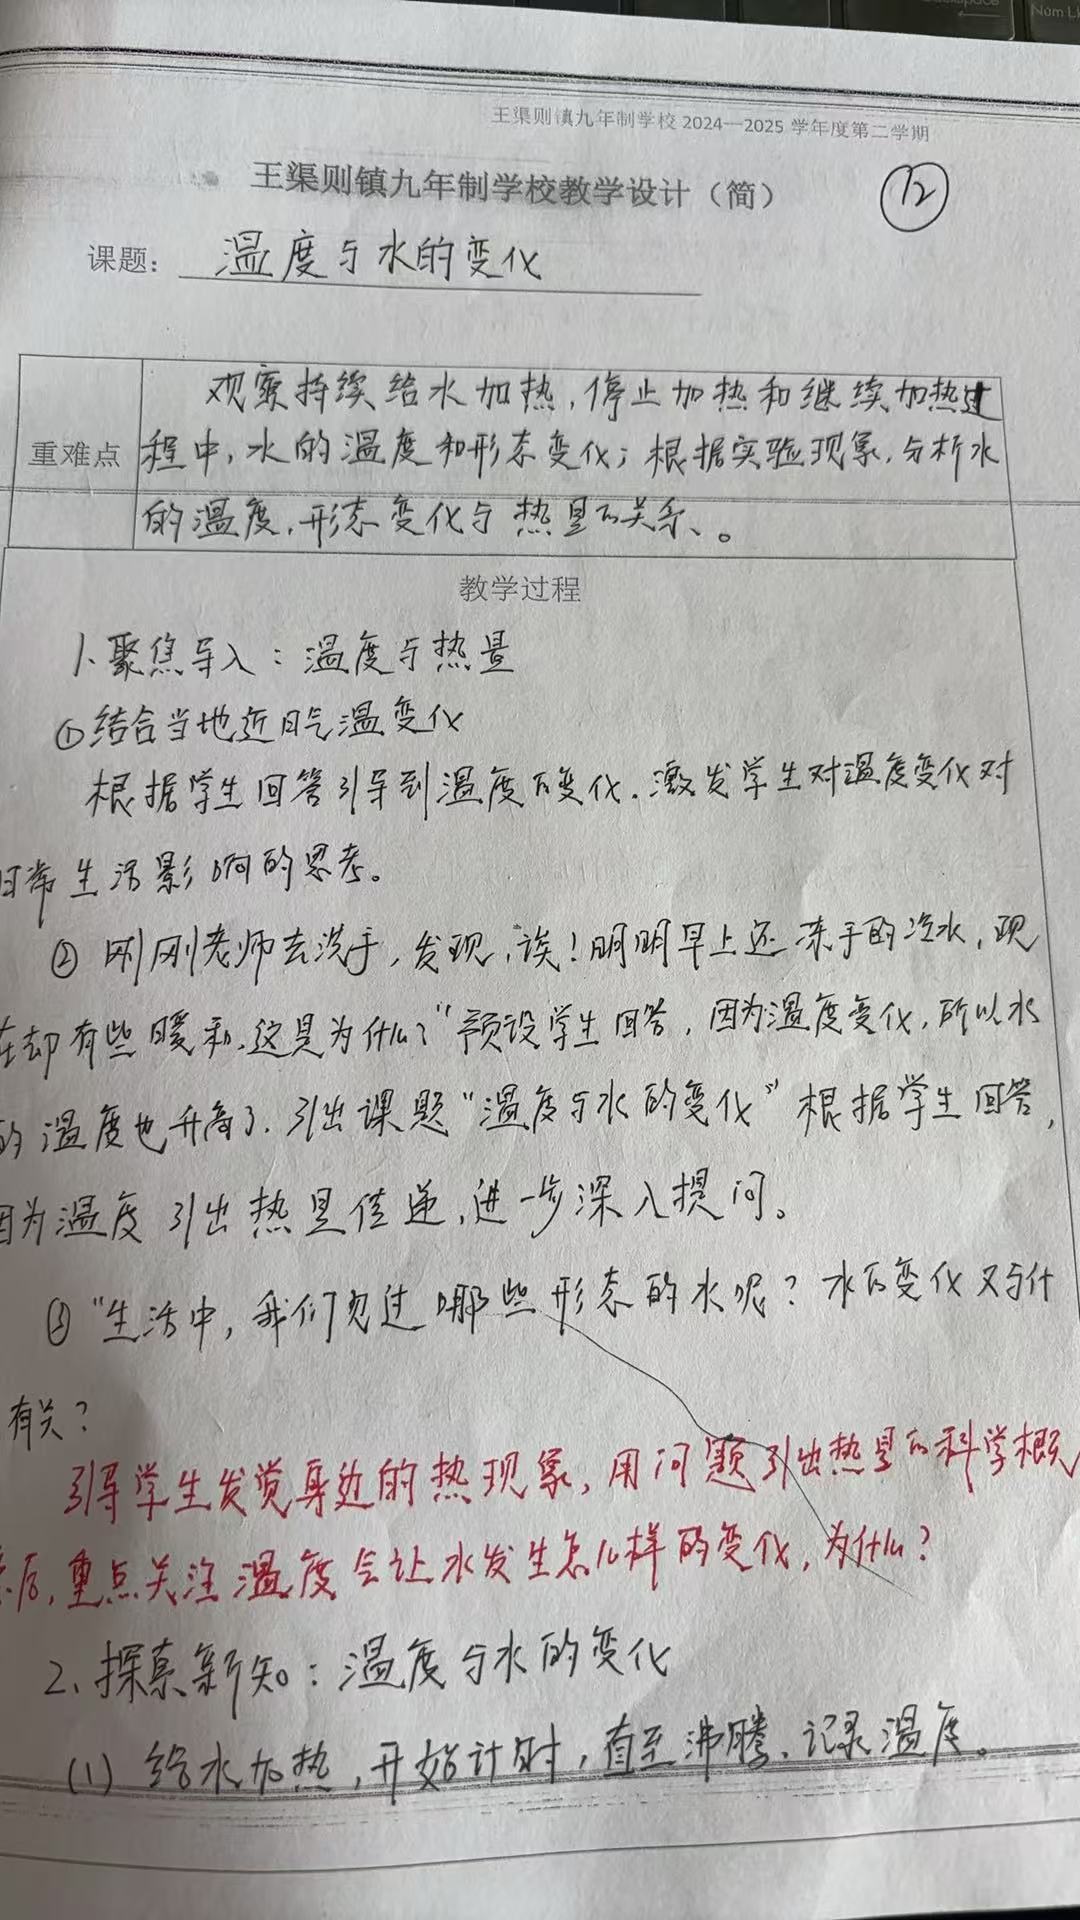 王渠则镇九年制学校 2024—2025 学年度第二学期
王渠则镇九年制学校教学设计（简）
12
课题：温度与水的变化
观察持续给水加热，停止加热和继续加热过
重难点
程中，水的温度和形态变化；根据实验现象，分析水
的温度，形态变化与热量的关系、。
教学过程
1、聚焦导入：温度与热量
①结合当地近日气温变化
根据学生回答引导到温度的变化，激发学生对温度变化对
日常生活影响的思考。
② 刚刚老师去洗手，发现，诶！明明早上还冻手的冷水，现
在却有些暖和，这是为什么？"预设学生回答，因为温度变化，所以水
的温度也升高了。引出课题"温度与水的变化"根据学生回答，
因为温度引出热量传递，进一步深入提问。
③"生活中，我们见过哪些形态的水呢？水的变化又与什
有关？
引导学生发觉身边的热现象，用问题引出热量的科学概
后，重点关注温度会让水发生怎么样的变化，为什么？
2、探索新知：温度与水的变化
(1) 给水加热，开始计时，直至沸腾、记录温度。
Num L